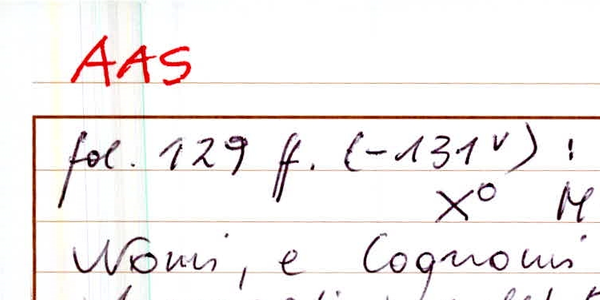 AAS
fol. 129 ff. (-131v) :
X° M
Nomi, e Cognomi